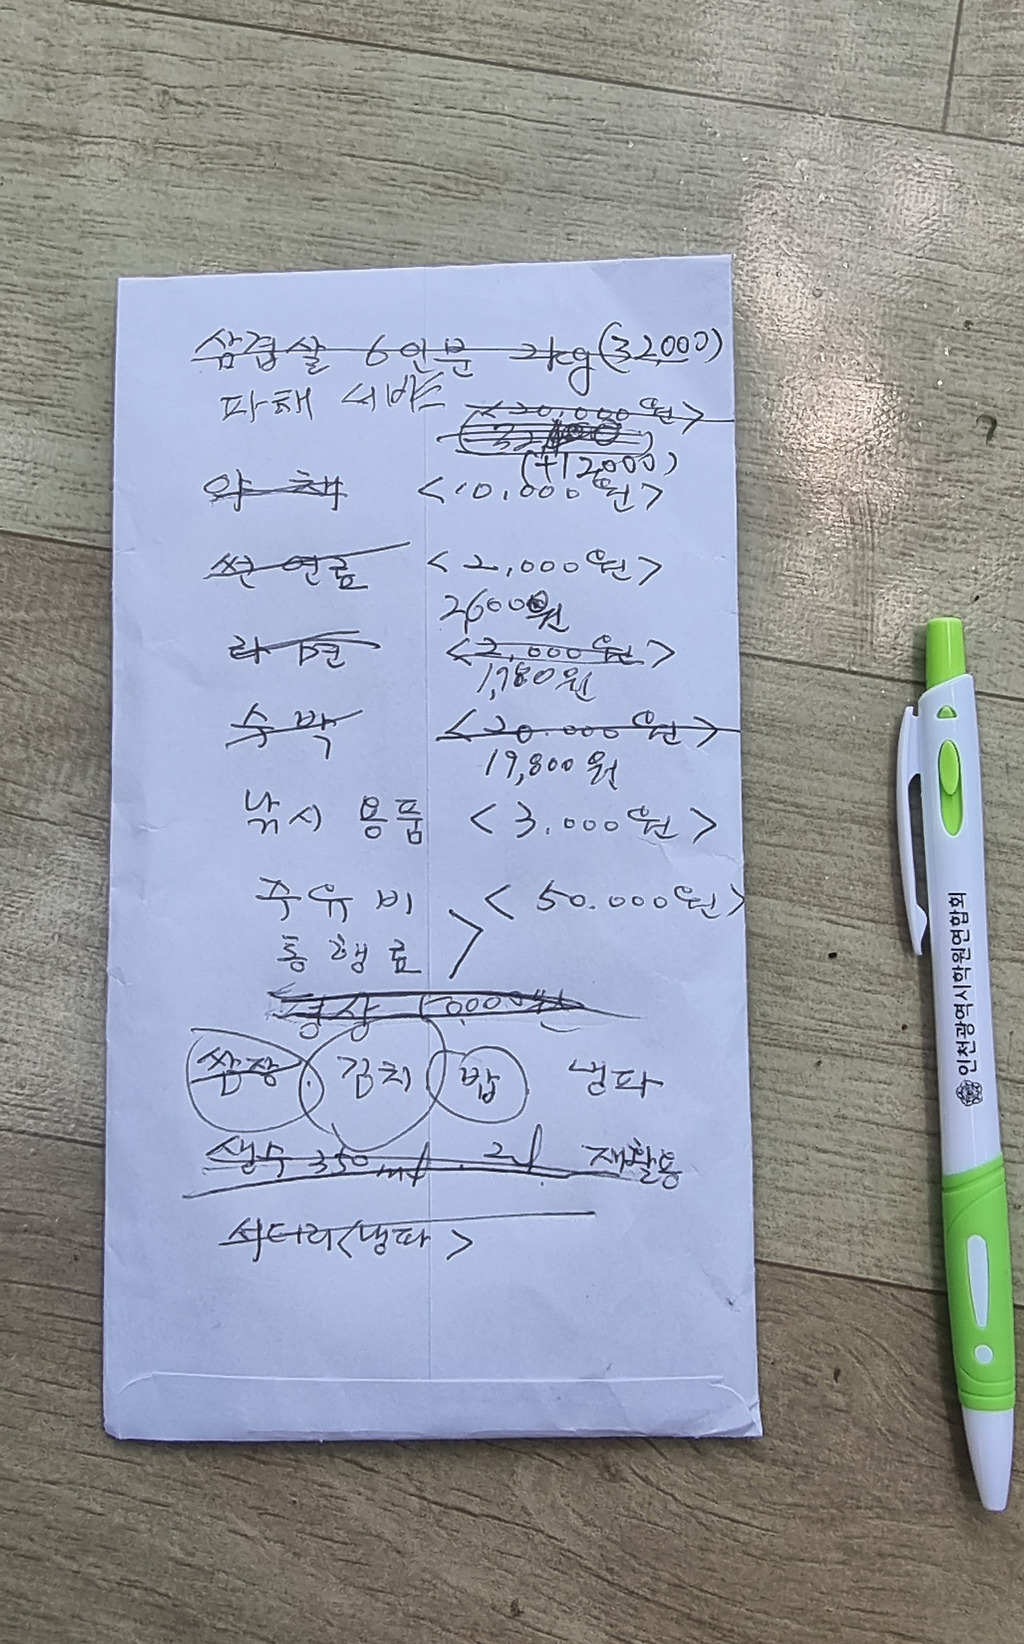 삼겹살 6인분 2kg (32,000)
파채 서비스 <20,000원>
(+12000)
야채 <10,000원>
썬연료 <2,000원>
2600원
라면 <2,000원>
1,980원
수박 <20.000원>
19,800원
낚시 용품 <3.000원>
주유비 <50.000원>
통행료
쌈장. 김치 밥 냉파
생수 350ml. 2l 재활용
<냉파>
인천광역시학원연합회